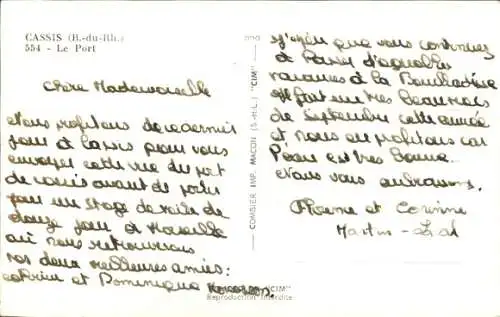 CASSIS (B.-du-Rh.)
554 - Le Port
Chère Mademoiselle
Nous profitons de ce dernier
jour à Cassis pour vous
envoyer cette vue du port
de Cassis avant de partir
pour un stage de voile de
douze jours à Marseille
où nous retrouverons
nos deux meilleures amies :
et Dominique
COMBIER IMP. MACON (S.-&-L.) "CIM"
"CIM"
Reproduction Interdite
J'espère que vous continuez
à passer d'agréables
vacances à la
Il fait un très beau mois
de Septembre cette année
et nous en profitons car
l'eau est très bonne.
Nous vous embrassons.
et Corinne